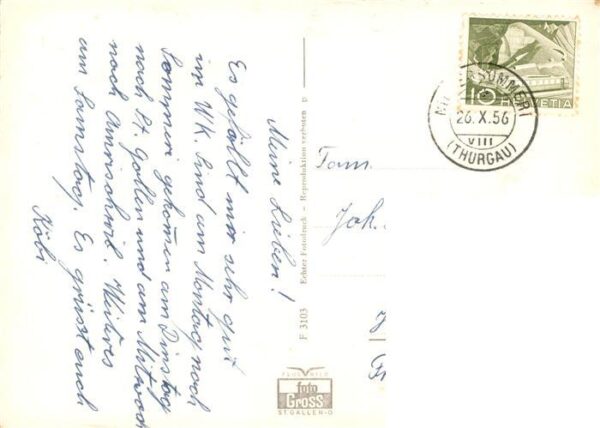 Meine Lieben!
Es gefällt mir sehr gut
im WK. Sind am Montag nach
Sommeri gekommen am Dinstag
nach St. Gallen und am Mitwoch
nach Amriswil. Weitres
am Samstag. Es grüsst euch
Köbi
F 3103 Echter Fotodruck – Reproduktion verboten
FLUGBILD
foto
Gross
ST. GALLEN-O
Fam.
Joh.
10 HELVETIA
SOMMERI
26.X.56
VIII
(THURGAU)